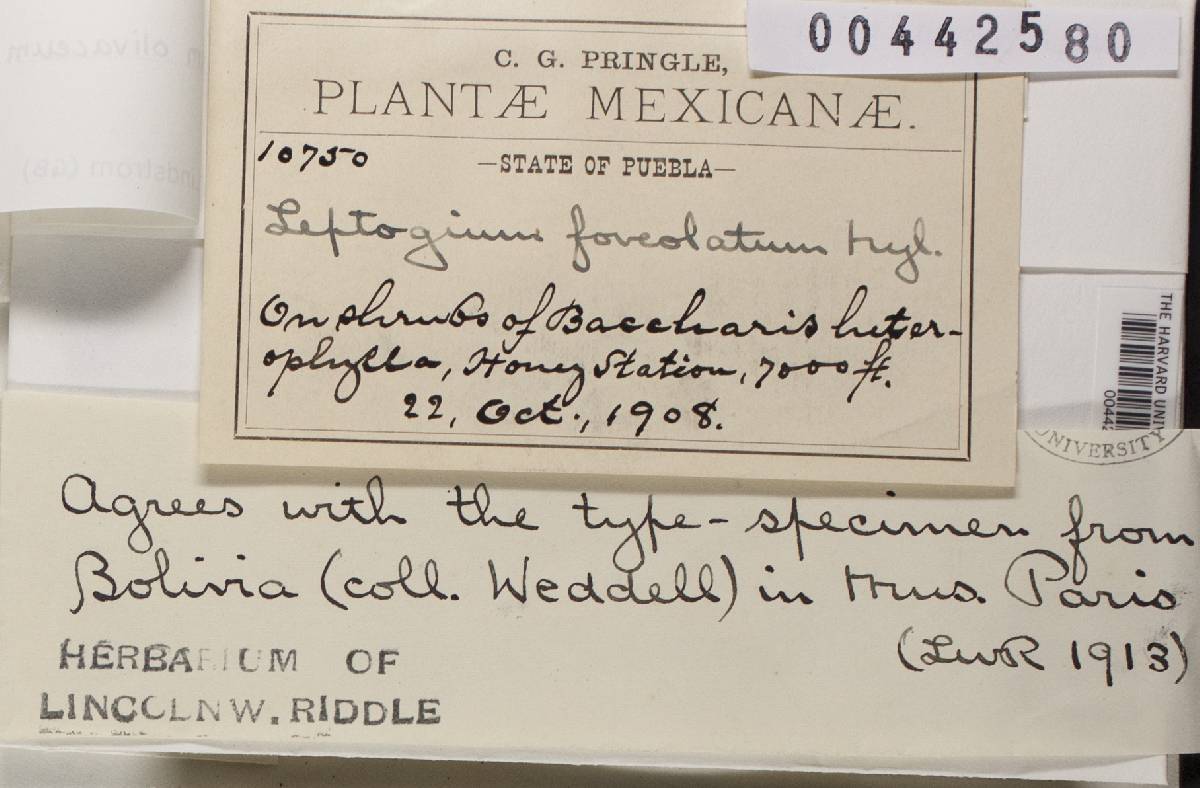 00442580
C. G. PRINGLE,
PLANTÆ MEXICANÆ.
10750
—STATE OF PUEBLA—
Leptogium foveolatum Nyl.
On shrubs of Baccharis heter-
ophylla, Honey Station, 7000 ft.
22, Oct., 1908.
THE HARVARD UNIV
0044
UNIVERSITY
Agrees with the type-specimen from
Bolivia (coll. Weddell) in Mus. Paris
(LWR 1913)
HERBARIUM OF
LINCOLN W. RIDDLE